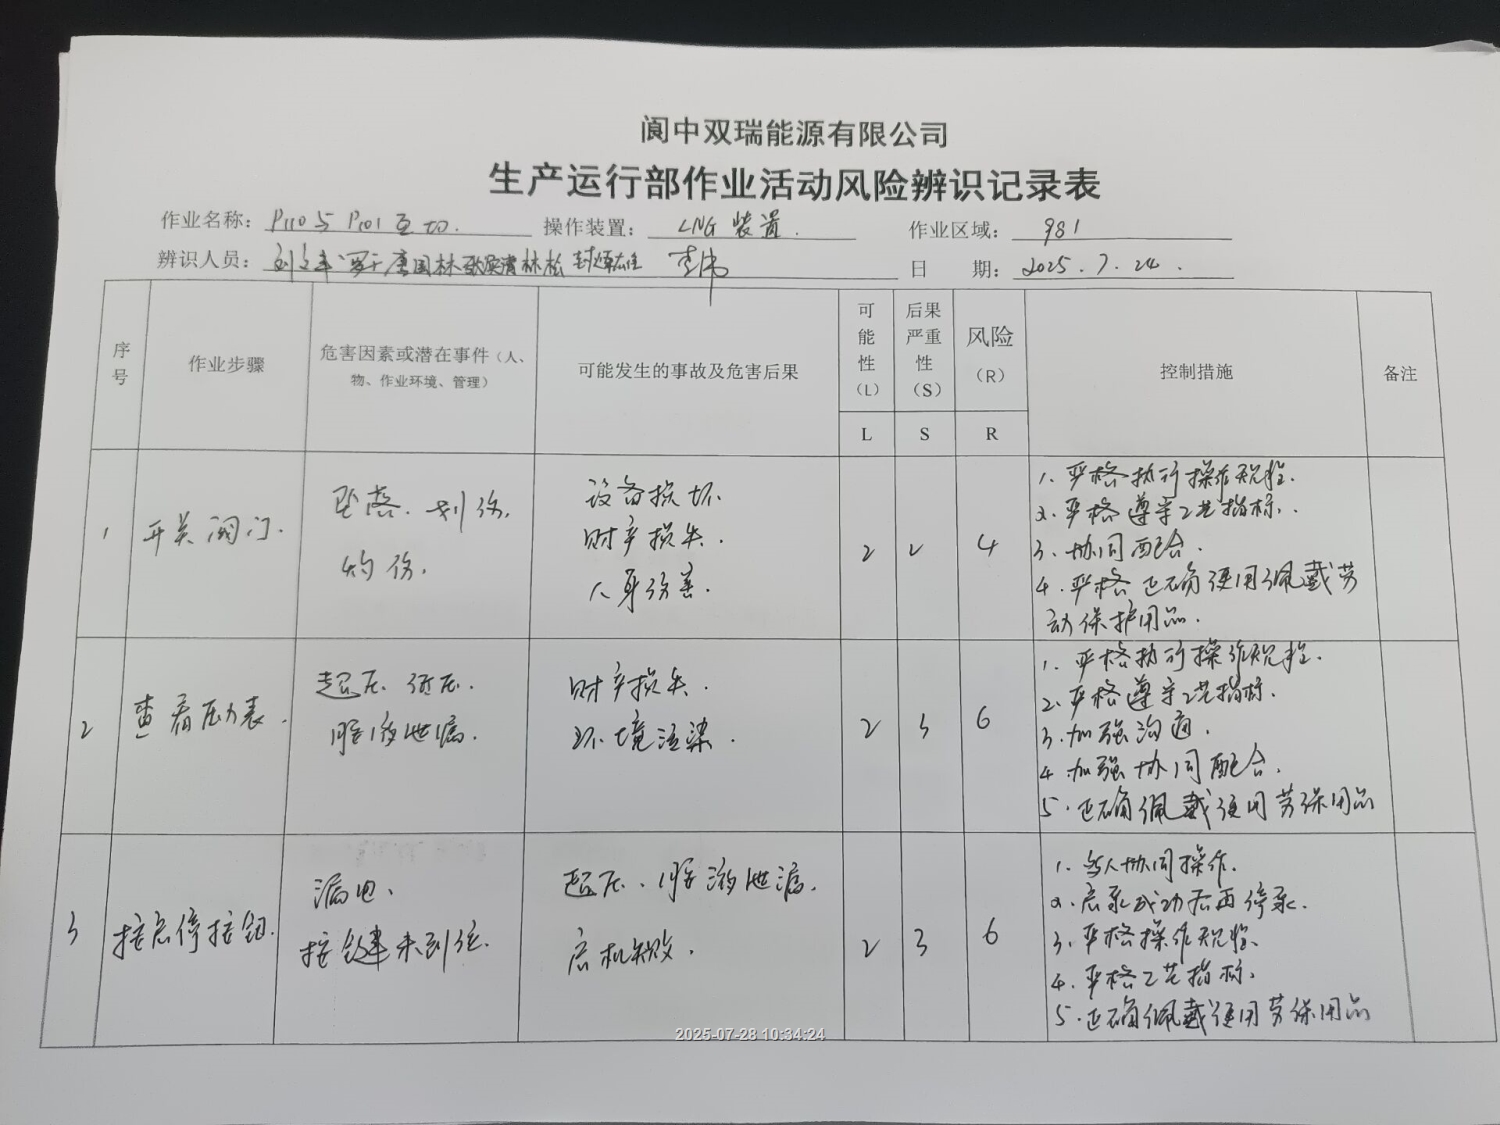 阆中双瑞能源有限公司
生产运行部作业活动风险辨识记录表
作业名称：P110与P101互切. 操作装置：LNG装置. 作业区域：981
辨识人员：罗 唐国林 林松 李伟 日 期：2025.7.24.
序号 作业步骤 危害因素或潜在事件（人、物、作业环境、管理） 可能发生的事故及危害后果 可能性（L） 后果严重性（S） 风险（R） 控制措施 备注
L S R
1 开关阀门.
坠落、划伤、
灼伤.
设备损坏.
财产损失.
人身伤害.
2 2 4
1. 严格执行操作规程.
2. 严格遵守工艺指标.
3. 协同配合.
4. 严格正确使用佩戴劳
动保护用品.
2 查看压力表.
超压、低压.
胺液泄漏.
财产损失.
环境污染.
2 3 6
1. 严格执行操作规程.
2. 严格遵守工艺指标.
3. 加强沟通.
4. 加强协同配合.
5. 正确佩戴使用劳保用品
3 按启停按钮.
漏电、
按键未到位.
超压、胺液泄漏.
启机失败.
2 3 6
1. 多人协同操作.
2. 启泵成功后再停泵.
3. 严格操作规程.
4. 严格工艺指标.
5. 正确佩戴使用劳保用品
2025-07-28 10:34:24